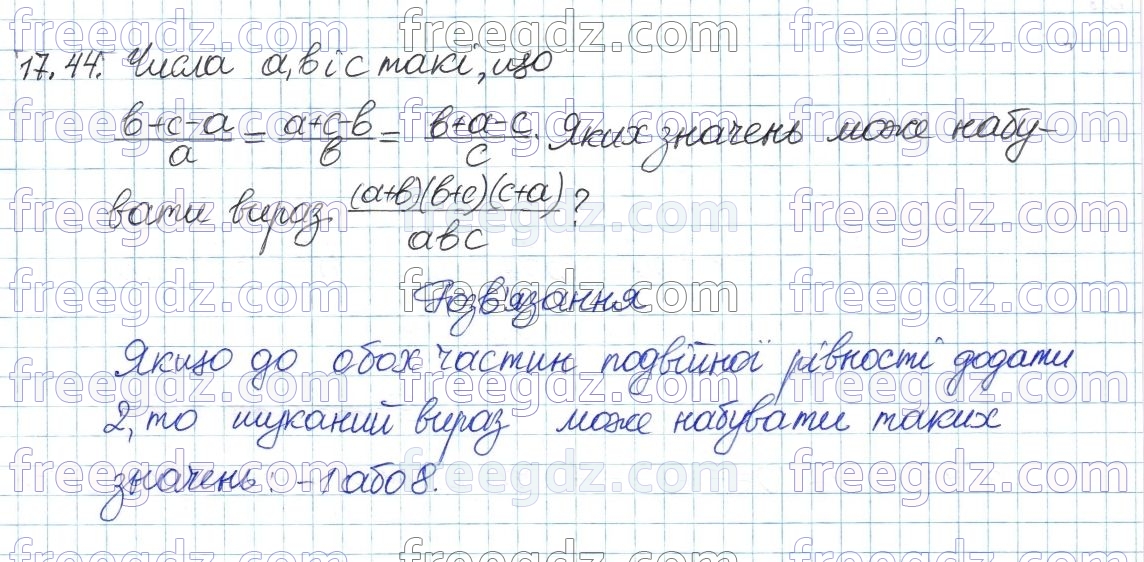 17.44. Числа a, b і c такі, що
(b+c-a)/a = (a+c-b)/b = (b+a-c)/c. Яких значень може набу-
вати вираз (a+b)(b+c)(c+a)/abc?
Розв'язання
Якщо до обох частин подвійної рівності додати
2, то шуканий вираз може набувати таких
значень: -1 або 8.
freegdz.com